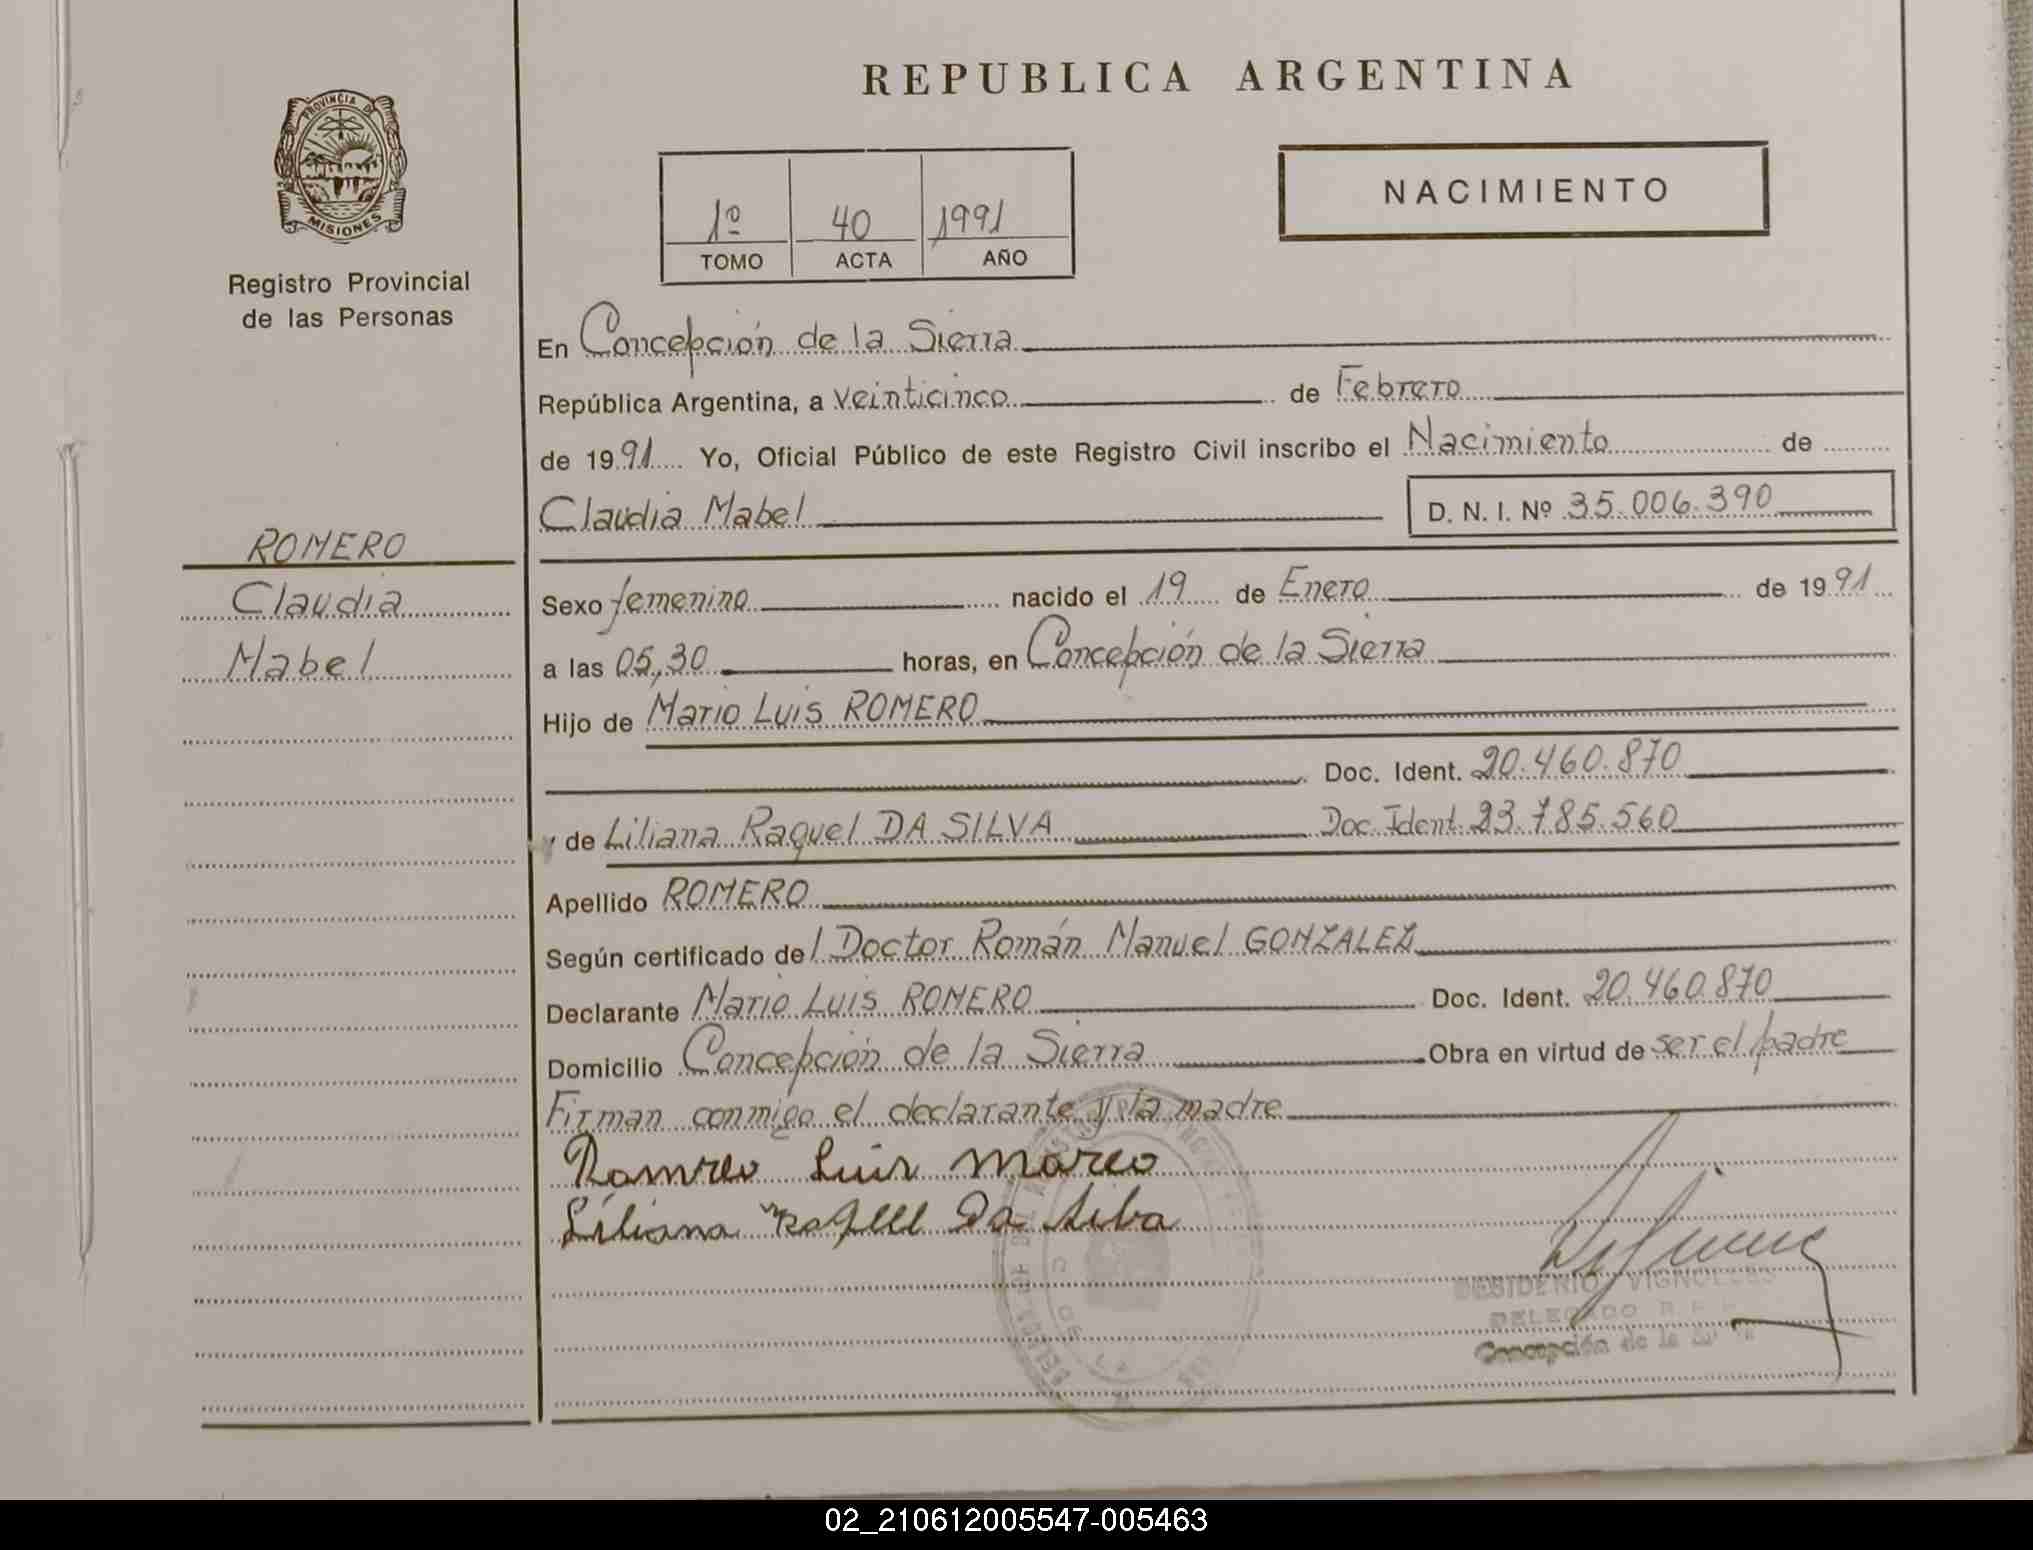 REPUBLICA ARGENTINA
PROVINCIA DE
MISIONES
Registro Provincial
de las Personas
1º 40 1991
TOMO ACTA AÑO
NACIMIENTO
En Concepción de la Sierra
República Argentina, a veinticinco de Febrero
de 1991 Yo, Oficial Público de este Registro Civil inscribo el Nacimiento de
Claudia Mabel D. N. I. Nº 35.006.390
ROMERO
Claudia
Mabel
Sexo femenino nacido el 19 de Enero de 1991
a las 05,30 horas, en Concepción de la Sierra
Hijo de Mario Luis ROMERO
Doc. Ident. 20.460.870
y de Liliana Raquel DA SILVA Doc. Ident. 23.785.560
Apellido ROMERO
Según certificado del Doctor Román Manuel GONZALEZ
Declarante Mario Luis ROMERO Doc. Ident. 20.460.870
Domicilio Concepción de la Sierra Obra en virtud de ser el padre
Firman conmigo el declarante y la madre
Luis
Liliana Da
DESIDERIO VIGNOLLES
DELEGADO
Concepción de la
02_210612005547-005463